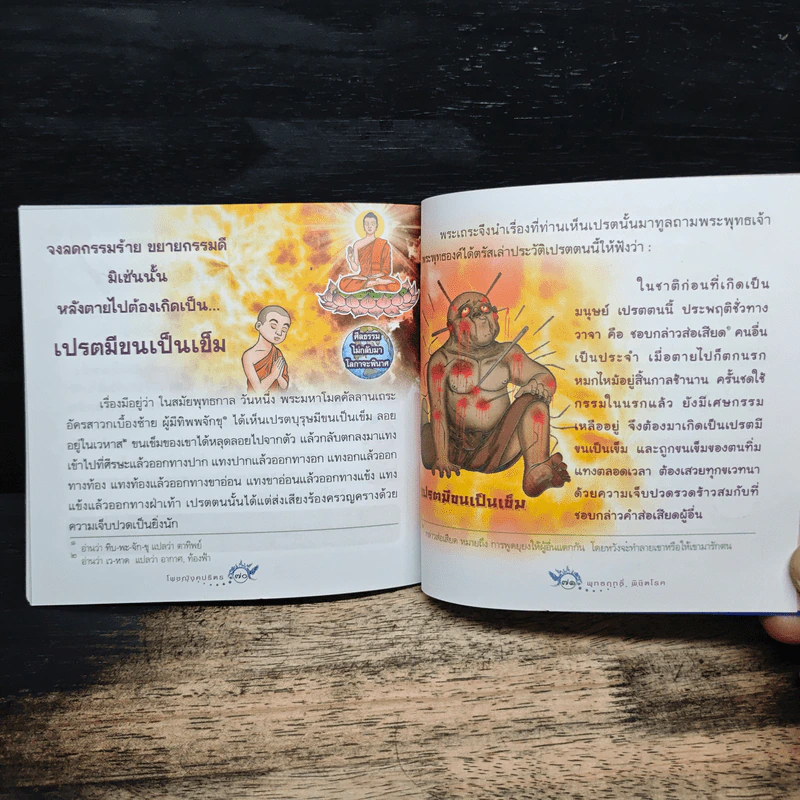 จงลดกรรมร้าย ขยายกรรมดี
มิเช่นนั้น
หลังตายไปต้องเกิดเป็น...
เปรตมีขนเป็นเข็ม
ศีลธรรม
ไม่กลับมา
โลกาจะพินาศ
เรื่องมีอยู่ว่า ในสมัยพุทธกาล วันหนึ่ง พระมหาโมคคัลลานเถระ
อัครสาวกเบื้องซ้าย ผู้มีทิพพจักขุ๑ ได้เห็นเปรตบุรุษมีขนเป็นเข็ม ลอย
อยู่ในเวหาส๒ ขนเข็มของเขาได้หลุดลอยไปจากตัว แล้วกลับตกลงมาแทง
เข้าไปที่ศีรษะแล้วออกทางปาก แทงปากแล้วออกทางอก แทงอกแล้วออก
ทางท้อง แทงท้องแล้วออกทางขาอ่อน แทงขาอ่อนแล้วออกทางแข้ง แทง
แข้งแล้วออกทางฝ่าเท้า เปรตตนนั้นได้แต่ส่งเสียงร้องครวญครางด้วย
ความเจ็บปวดเป็นยิ่งนัก
๑ อ่านว่า ทิบ-พะ-จัก-ขุ แปลว่า ตาทิพย์
๒ อ่านว่า เว-หาด แปลว่า อากาศ, ท้องฟ้า
โพชฌังคปริตร ๗๐
พระเถระจึงนำเรื่องที่ท่านเห็นเปรตนั้นมาทูลถามพระพุทธเจ้า
พระพุทธองค์ได้ตรัสเล่าประวัติเปรตตนนี้ให้ฟังว่า :
ในชาติก่อนที่เกิดเป็น
มนุษย์ เปรตตนนี้ ประพฤติชั่วทาง
วาจา คือ ชอบกล่าวส่อเสียด๑ คนอื่น
เป็นประจำ เมื่อตายไปก็ตกนรก
หมกไหม้อยู่สิ้นกาลช้านาน ครั้นชดใช้
กรรมในนรกแล้ว ยังมีเศษกรรม
เหลืออยู่ จึงต้องมาเกิดเป็นเปรตมี
ขนเป็นเข็ม และถูกขนเข็มของตนทิ่ม
แทงตลอดเวลา ต้องเสวยทุกขเวทนา
ด้วยความเจ็บปวดรวดร้าวสมกับที่
ชอบกล่าวคำส่อเสียดผู้อื่น
เปรตมีขนเป็นเข็ม
กล่าวส่อเสียด หมายถึง การพูดยุยงให้ผู้อื่นแตกกัน โดยหวังจะทำลายเขาหรือให้เขามารักตน
๗๑ พุทธฤทธิ์, พิชิตโรค